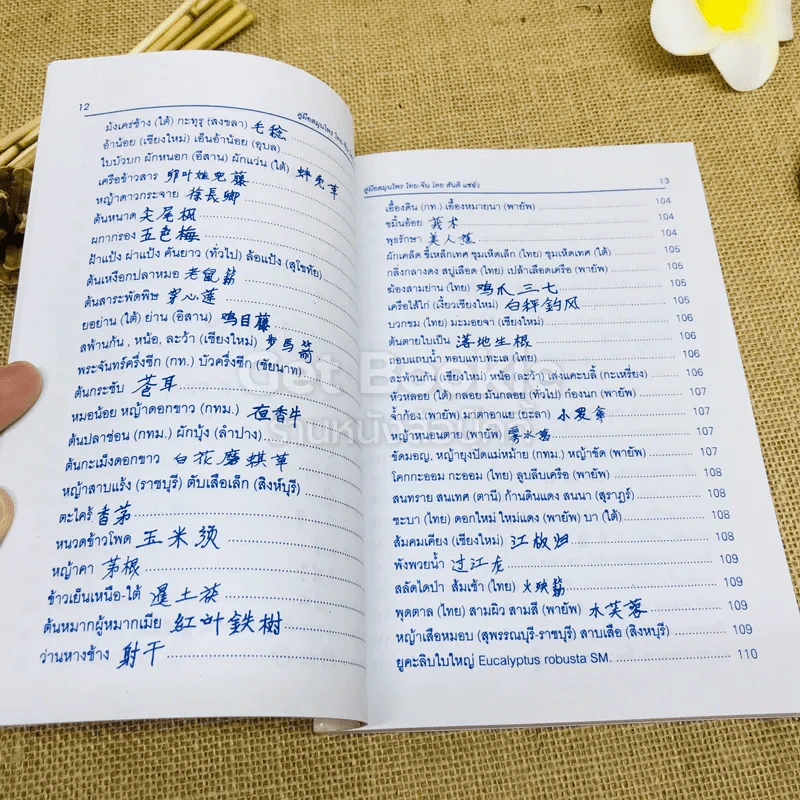 12
คู่มือสมุนไพร ไทย-จีน
ม้งเคร่ช้าง (ใต้) กะทุรุ (สงขลา) 毛稔
อ้าน้อย (เชียงใหม่) เอ็นอ้าน้อย (อุบล)
ใบบัวบก ผักหนอก (อีสาน) ผักแว่น (ใต้) 蚌壳草
เครือข้าวสาร 卵叶娃儿藤
หญ้าดาวกระจาย 徐長卿
ต้นหนาด 尖尾枫
ผกากรอง 五色梅
ฝ้าแป้ง ผ่าแป้ง คันยาว (ทั่วไป) ล้อแป้ง (สุโขทัย)
ต้นเหงือกปลาหมอ 老鼠簕
ต้นสาระพัดพิษ 穿心莲
ยอย่าน (ใต้) ย่าน (อีสาน) 鸡目藤
สพ้านก้น, หน้อ, ละว้า (เชียงใหม่) 步馬箭
พระจันทร์ครึ่งซีก (กท.) บัวครึ่งซีก (ชัยนาท)
ต้นกระชับ 苍耳
หมอน้อย หญ้าดอกขาว (กทม.) 夜香牛
ต้นปลาช่อน (กทม.) ผักบุ้ง (ลำปาง)
ต้นกะเม็งดอกขาว 白花磨棋草
หญ้าสาบแร้ง (ราชบุรี) ตับเสือเล็ก (สิงห์บุรี)
ตะไคร้ 香茅
หนวดข้าวโพด 玉米须
หญ้าคา 茅根
ข้าวเย็นเหนือ-ใต้ 暹土茯
ต้นหมากผู้หมากเมีย 紅叶鉄樹
ว่านหางช้าง 射干
คู่มือสมุนไพร ไทย-จีน โดย สันติ แซ่ฉั่ว 13
เอื้องดิน (กท.) เอื้องหมายนา (พายัพ) 104
ขมิ้นอ้อย 莪术 104
พุธรักษา 美人蕉 104
ผักเคล็ด ขี้เหล็กเทศ ชุมเห็ดเล็ก (ไทย) ชุมเห็ดเทศ (ใต้) 105
กลิ้งกลางดง สบู่เลือด (ไทย) เปล้าเลือดเครือ (พายัพ) 105
ฆ้องสามย่าน (ไทย) 鸡爪三七 105
เครือไส้ไก่ (เงี้ยวเชียงใหม่) 白秤钓风 105
บวกขม (ไทย) มะมอยจา (เชียงใหม่) 106
ต้นตายใบเป็น 落地生根 106
ถอบแถบน้ำ ทอบแทบทะเล (ไทย) 106
สะพ้านก้น (เชียงใหม่) หน้อ (ละว้า) เส่งแคะบลี้ (กะเหรี่ยง) 106
หัวหลอย (ใต้) กลอย มันกลอย (ทั่วไป) ก๋องนก (พายัพ) 107
จ้ำก้อง (พายัพ) มาตาอาแย (ยะลา) 小罗伞 107
หญ้าหนอนตาย (พายัพ) 雾水葛 107
ขัดมอญ, หญ้ายุงปัดแม่หม้าย (กทม.) หญ้าขัด (พายัพ) 107
โคกกะออม กะออม (ไทย) ลูบลีบเครือ (พายัพ) 108
สนทราย สนเทศ (ตานี) ก้านดินแดง สนนา (สุราฎร์) 108
ชะบา (ไทย) ดอกใหม่ ใหม่แดง (พายัพ) บา (ใต้) 108
ส้มคมเคียง (เชียงใหม่) 江椒归 108
พังพวยน้ำ 过江龙 109
สลัดไดป่า ส้มเช้า (ไทย) 火殃簕 109
พุดตาล (ไทย) สามผิว สามสี (พายัพ) 木芙蓉 109
หญ้าเสือหมอบ (สุพรรณบุรี-ราชบุรี) สาบเสือ (สิงหบุรี) 109
ยูคะลิบใบใหญ่ Eucalyptus robusta SM. 110
Get Bookie
ร้านหนังสือมือ